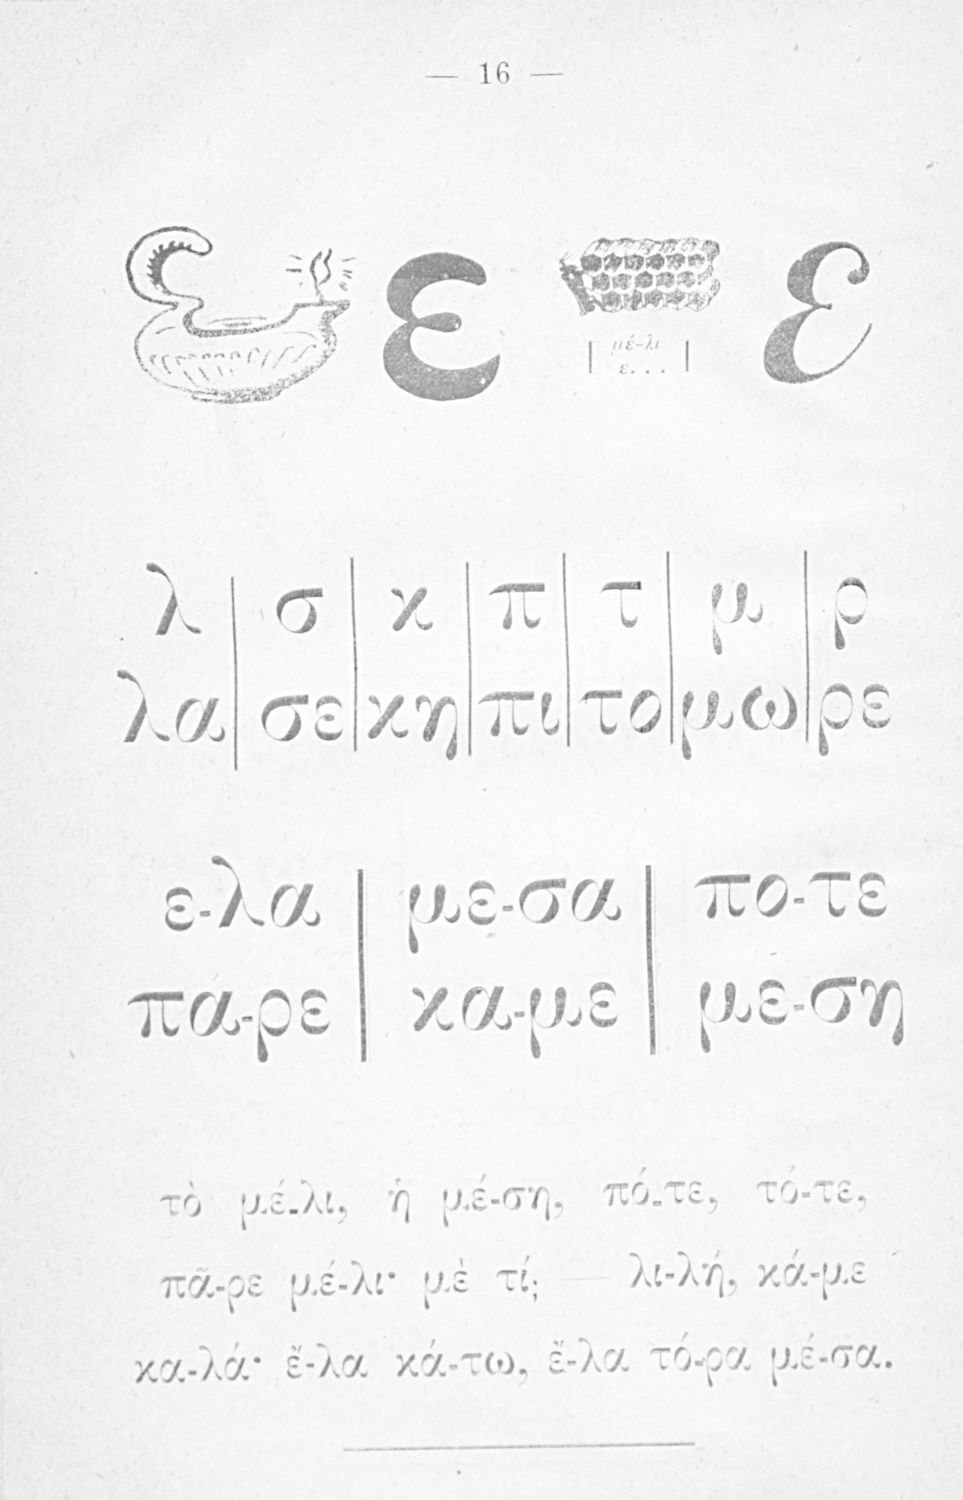 — 16 —
ε ε
μέ-λι
ε...
λ σ κ π τ μ ρ
λα σε κη πι το μω ρε
ε-λα με-σα πο-τε
πα-ρε κα-με με-ση
τὸ μέ-λι, ἡ μέ-ση, πό-τε, τό-τε,
πᾶ-ρε μέ-λι· μὲ τί; — λι-λή, κά-με
κα-λά· ἔ-λα κά-τω, ἔ-λα τό-ρα μέ-σα.